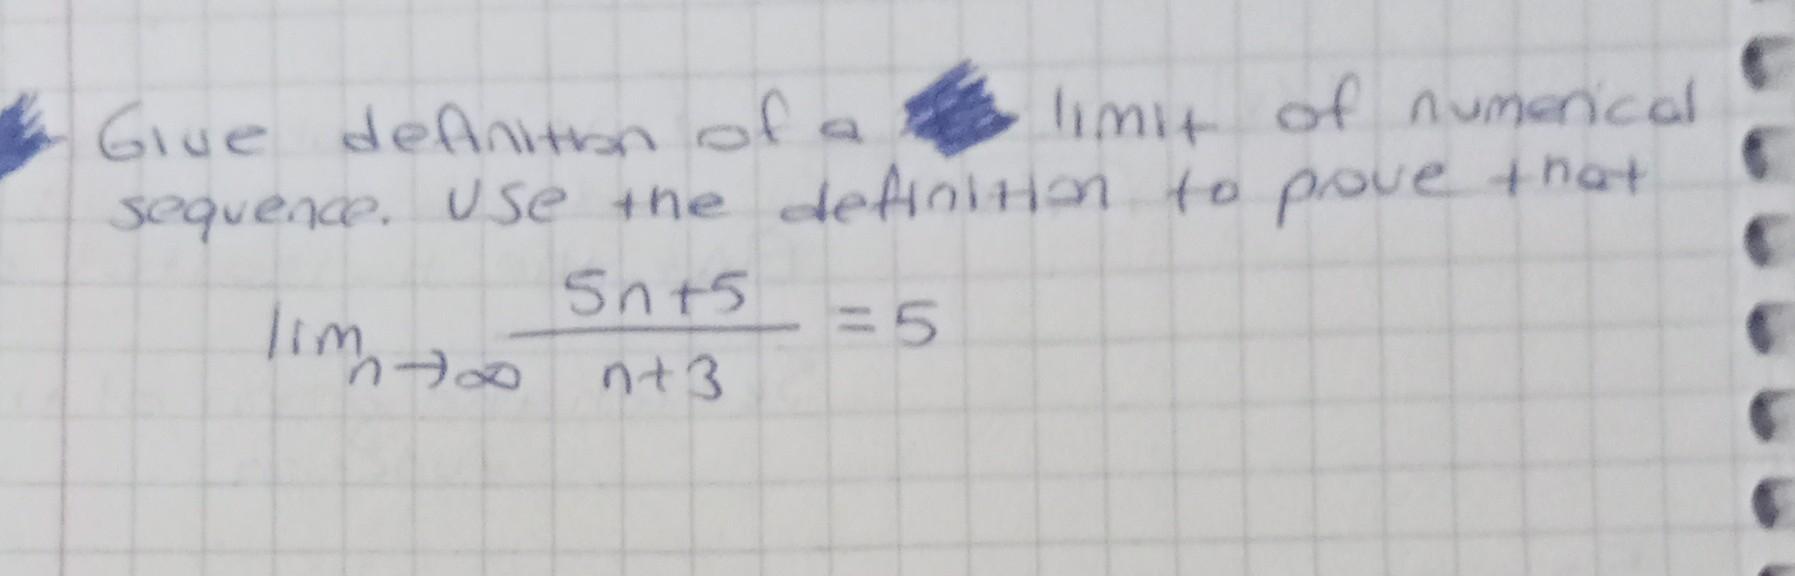 Give definition of a limit of numerical
sequence. Use the definition to prove that
lim n→∞ (5n+5)/(n+3) = 5